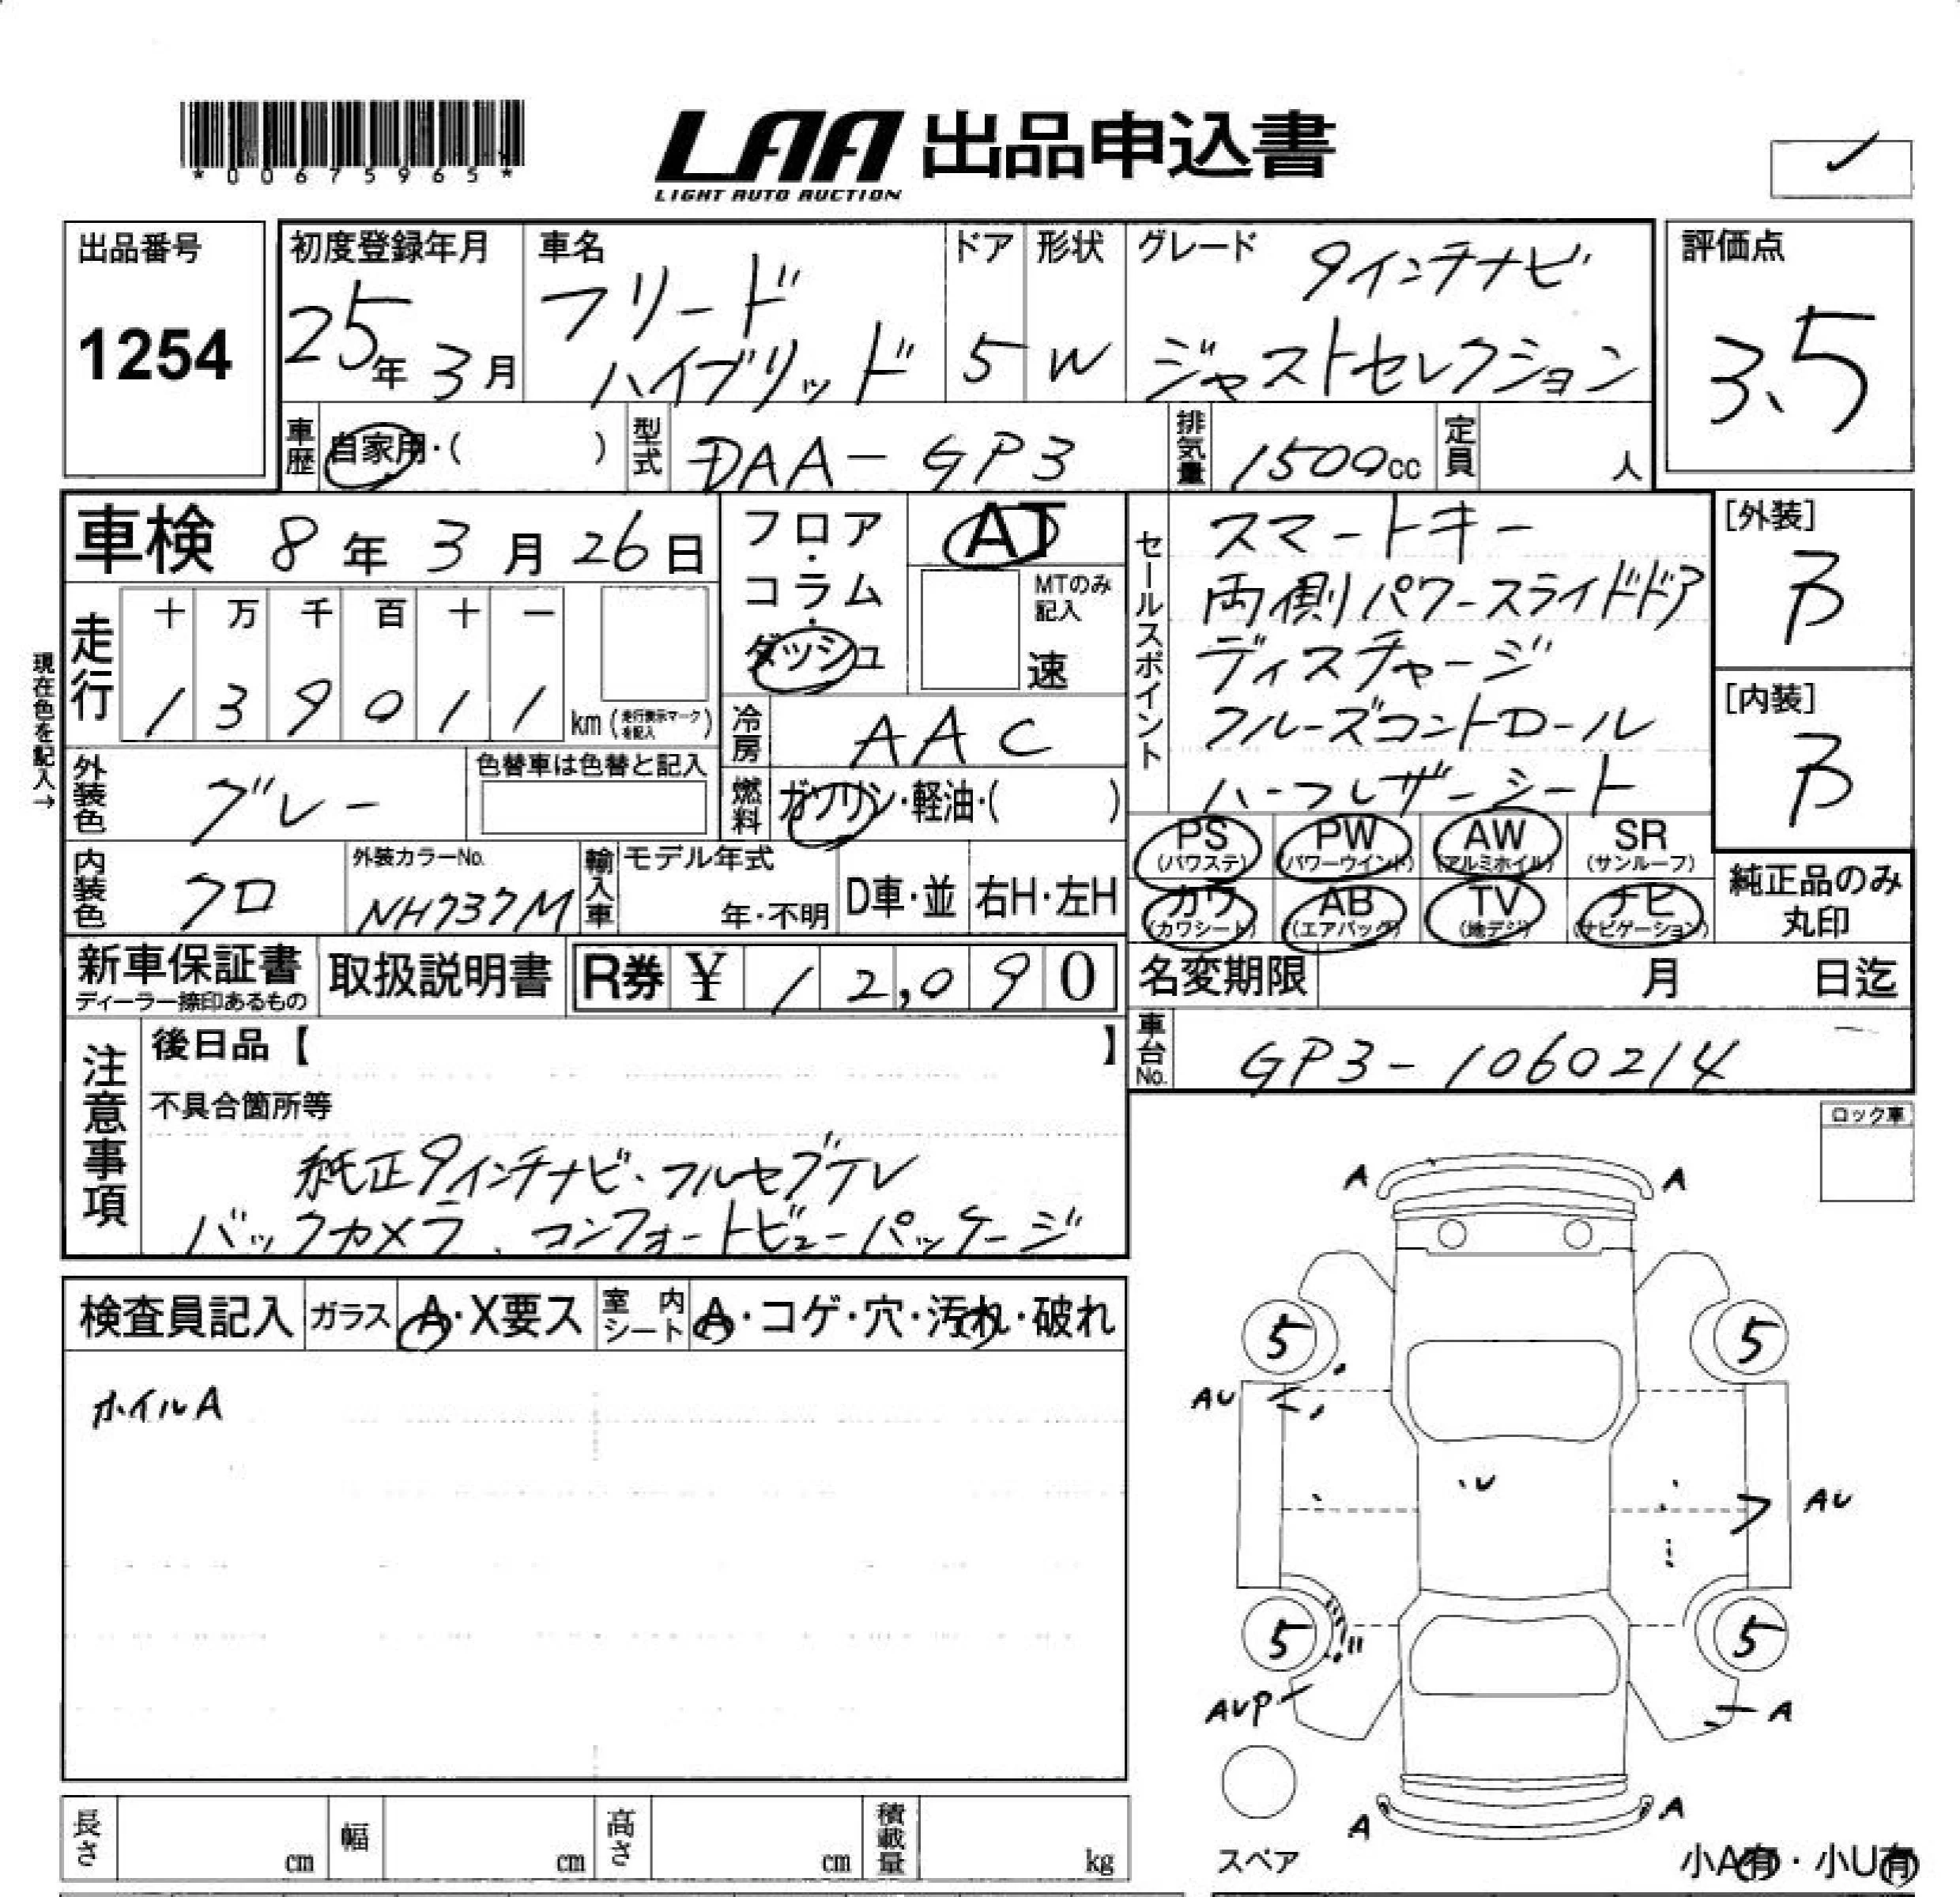 *00675965*
LAA 出品申込書
LIGHT AUTO AUCTION
出品番号
1254
初度登録年月
25年 3月
車名
フリード
ハイブリッド
ドア
5
形状
W
グレード
9インチナビ
ジャストセレクション
評価点
3.5
車歴 自家用・( )
型式 DAA-GP3
排気量 1500cc
定員 人
車検 8年 3月 26日
フロア・コラム・ダッシュ
AT
MTのみ記入
速
セールスポイント
スマートキー
両側パワースライドドア
ディスチャージ
クルーズコントロール
ハーフレザーシート
[外装]
B
[内装]
B
現在色を記入→
走行
十 万 千 百 十 一
1 3 9 0 1 1 km (走行表示マークを記入)
冷房 AAC
外装色 グレー
色替車は色替と記入
燃料 ガソリン・軽油・( )
PS (パワステ)
PW (パワーウインド)
AW (アルミホイル)
SR (サンルーフ)
カワ (カワシート)
AB (エアバッグ)
TV (地デジ)
ナビ (ナビゲーション)
純正品のみ丸印
内装色 クロ
外装カラーNo. NH737M
輸入車 モデル年式 年・不明
D車・並
右H・左H
新車保証書
ディーラー捺印あるもの
取扱説明書
R券 ¥ 12,090
名変期限 月 日迄
車台No. GP3-1060214
注意事項
後日品【 】
不具合箇所等
純正9インチナビ、フルセグTV
バックカメラ、コンフォートビューパッケージ
ロック車
検査員記入 ガラス A・X要ス 室内シート A・コゲ・穴・汚れ・破れ
ホイルA
A A
5 5
AU
U
AU
5 5
AUP A
A A
スペア
小A有・小U有
長さ cm 幅 cm 高さ cm 積載量 kg